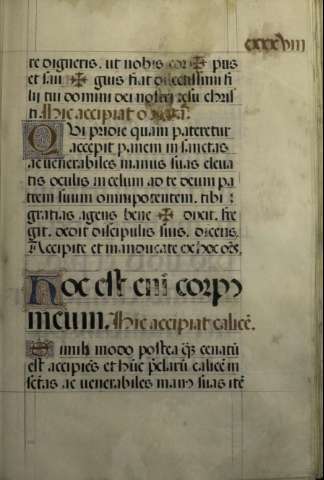 cxxxviii
te digneris. ut nobis cor ✠ pus
et san ✠ guis fiat dilectissimi fi
lii tui domini dei nostri iesu chris
ti. Hic accipiat
QVi pridie quam pateretur
accepit panem in sanctas
ac venerabiles manus suas eleva
tis oculis in celum ad te deum pa
trem suum omnipotentem. tibi
gratias agens bene ✠ dixit. fre
git. dedit discipulis suis. dicens.
Accipite et manducate ex hoc oẽs.
Hoc est eni corpꝰ
meum. Hic accipiat calicẽ.
Simili modo postea q̃ cenatũ
est accipiẽs et hũc p̃clarũ calicẽ in
sctãs ac venerabiles manꝰ suas itẽ